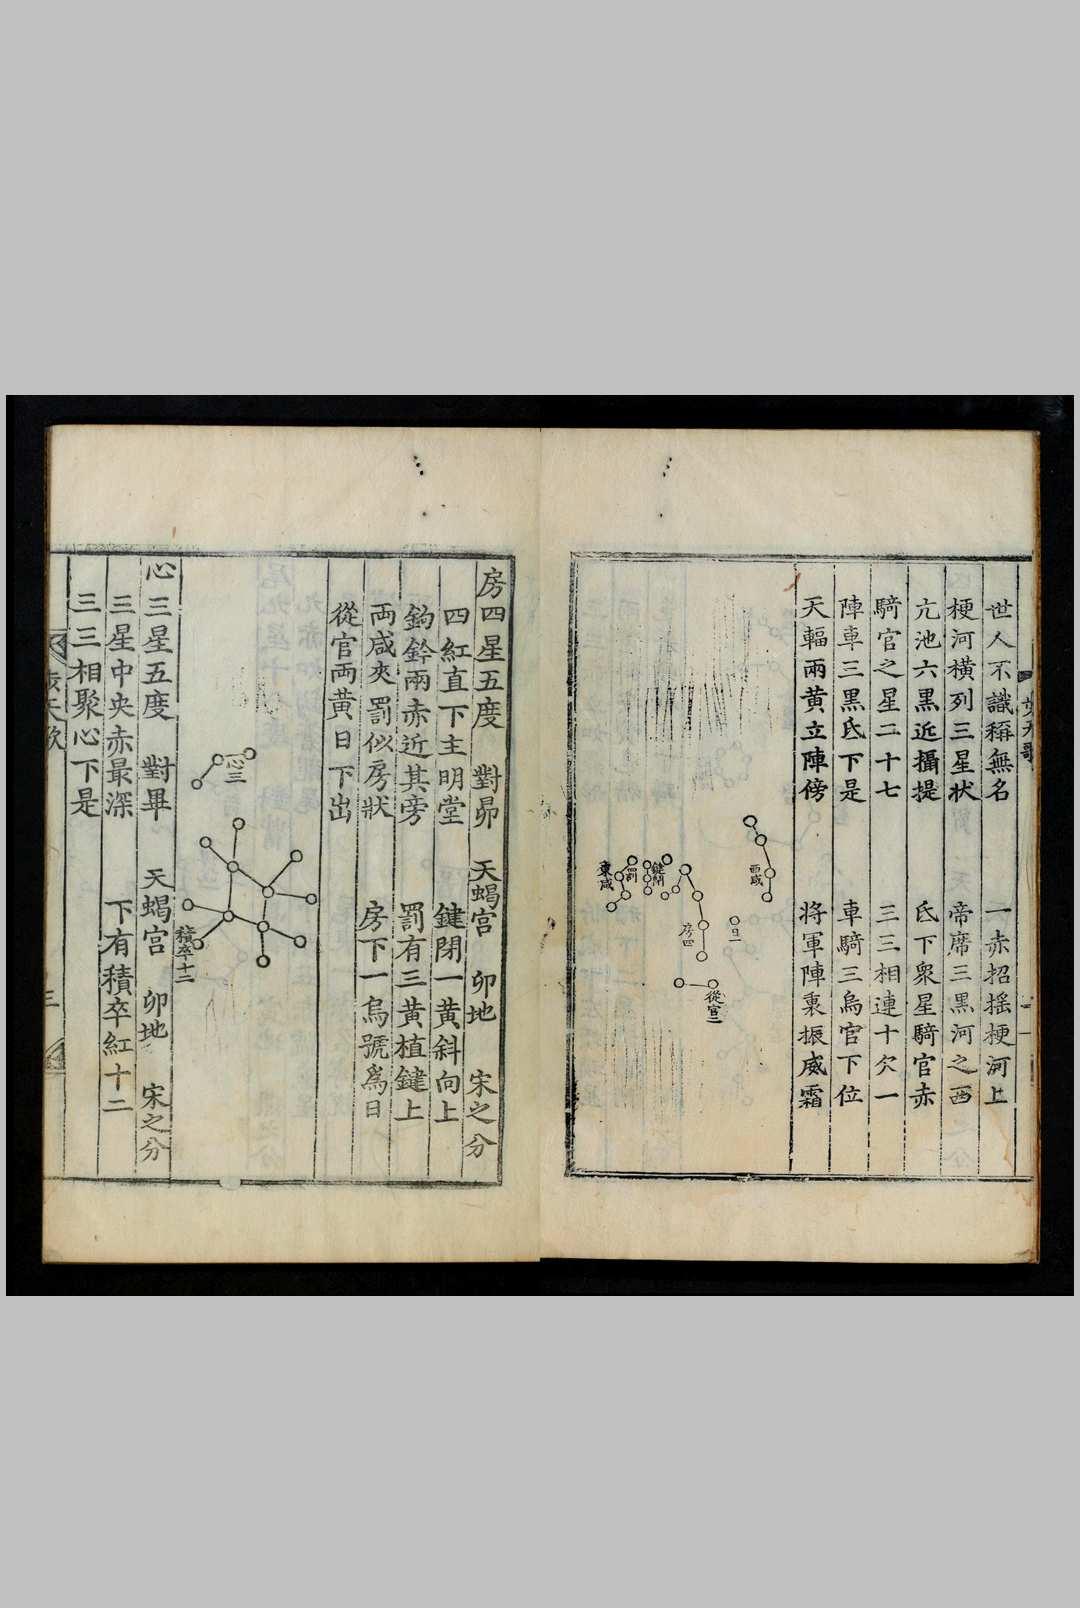 世人不識稱無名　一赤招搖梗河上
梗河橫列三星狀　帝席三黑河之西
亢池六黑近攝提　氐下衆星騎官赤
騎官之星二十七　三三相連十欠一
陣車三黑氐下是　車騎三烏官下位
天輻兩黃立陣傍　將軍陣裏振威霜
西咸
日一
從官二
房四
鍵閉
罰
東咸
房四星五度　對昴　天蝎宮　卯地　宋之分
四紅直下主明堂　鍵閉一黃斜向上
鉤鈐兩赤近其旁　罰有三黃植鍵上
両咸夾罰似房狀　房下一烏號爲日
從官両黃日下出
心三
積卒十二
心三星五度　對畢　天蝎宮　卯地　宋之分
三星中央赤最深　下有積卒紅十二
三三相聚心下是
天歌
三